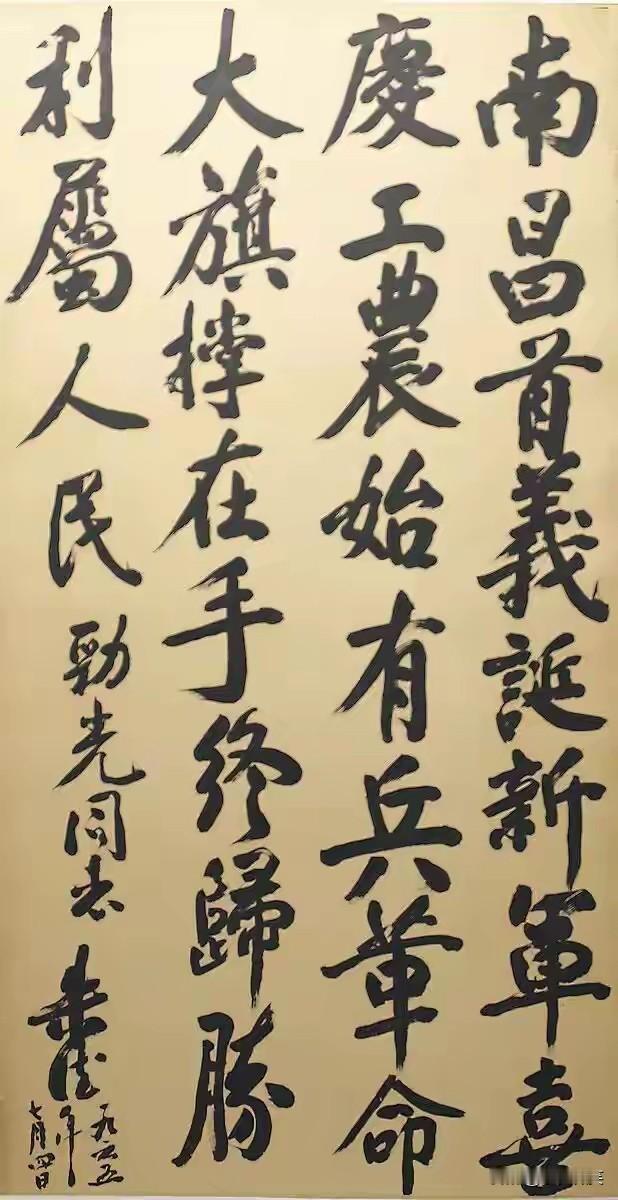 南昌首義誕新軍喜
慶工農始有兵革命
大旗撑在手終歸勝
利屬人民 勁光同志 朱德
一九六五年
七月四日